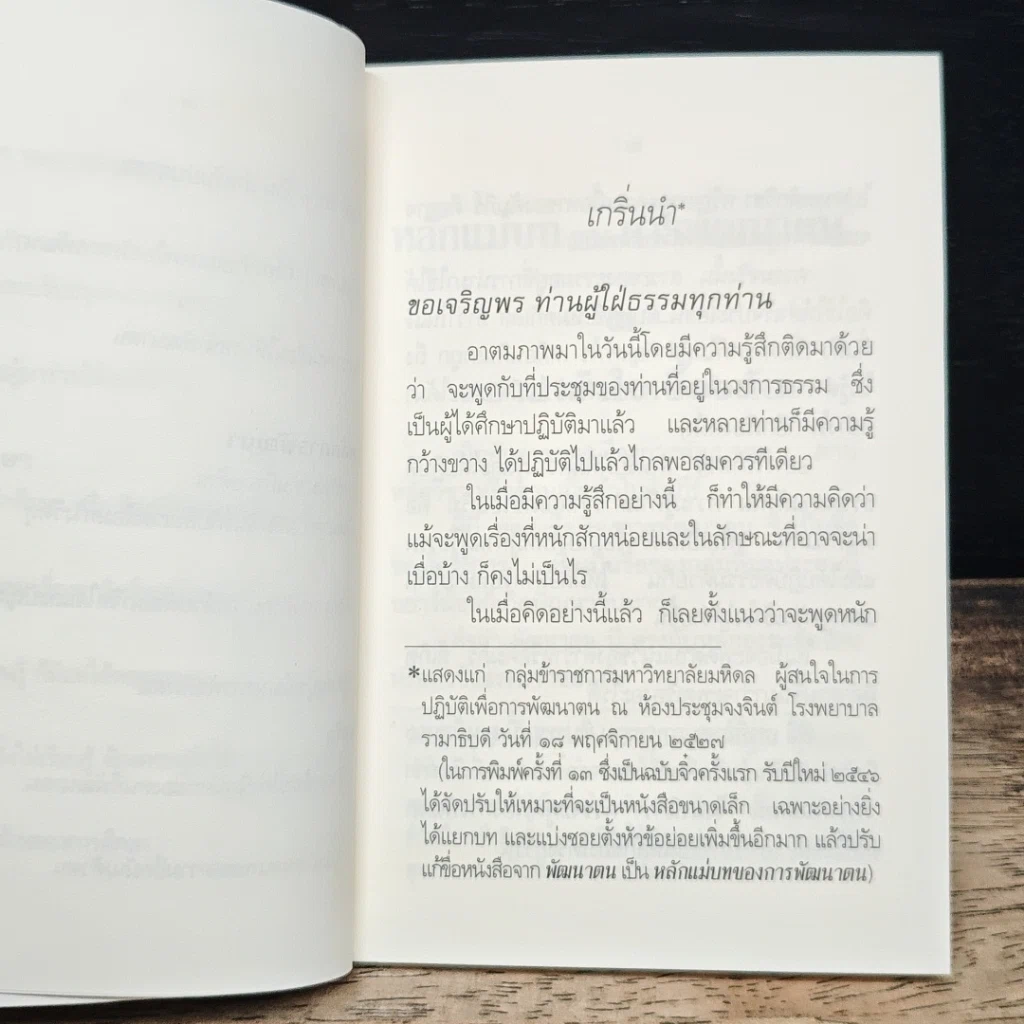 เกริ่นนำ*
ขอเจริญพร ท่านผู้ใฝ่ธรรมทุกท่าน
อาตมภาพมาในวันนี้โดยมีความรู้สึกติดมาด้วย
ว่า จะพูดกับที่ประชุมของท่านที่อยู่ในวงการธรรม ซึ่ง
เป็นผู้ได้ศึกษาปฏิบัติมาแล้ว และหลายท่านก็มีความรู้
กว้างขวาง ได้ปฏิบัติไปแล้วไกลพอสมควรทีเดียว
ในเมื่อมีความรู้สึกอย่างนี้ ก็ทำให้มีความคิดว่า
แม้จะพูดเรื่องที่หนักสักหน่อยและในลักษณะที่อาจจะน่า
เบื่อบ้าง ก็คงไม่เป็นไร
ในเมื่อคิดอย่างนี้แล้ว ก็เลยตั้งแนวว่าจะพูดหนัก
*แสดงแก่ กลุ่มข้าราชการมหาวิทยาลัยมหิดล ผู้สนใจในการ
ปฏิบัติเพื่อการพัฒนาตน ณ ห้องประชุมจงจินต์ โรงพยาบาล
รามาธิบดี วันที่ ๑๘ พฤศจิกายน ๒๕๒๗
(ในการพิมพ์ครั้งที่ ๑๓ ซึ่งเป็นฉบับจิ๋วครั้งแรก รับปีใหม่ ๒๕๔๖
ได้จัดปรับให้เหมาะที่จะเป็นหนังสือขนาดเล็ก เฉพาะอย่างยิ่ง
ได้แยกบท และแบ่งซอยตั้งหัวข้อย่อยเพิ่มขึ้นอีกมาก แล้วปรับ
แก้ชื่อหนังสือจาก พัฒนาตน เป็น หลักแม่บทของการพัฒนาตน)